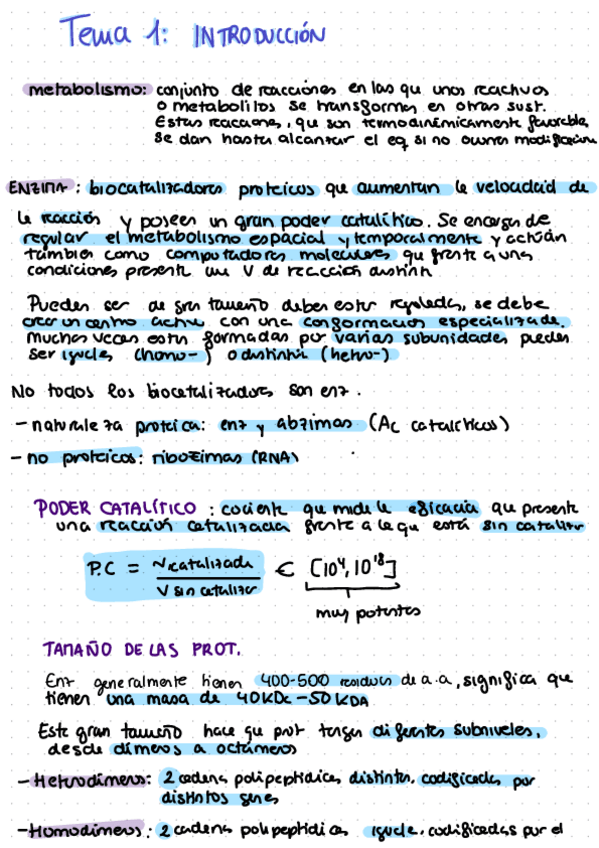 Tema 1: INTRODUCCIÓN
metabolismo: conjunto de reacciones en las que unos reactivos
o metabolitos se transforman en otras sust.
Estas reacciones, que son termodinámicamente favorables,
se dan hasta alcanzar el eq si no ocurren modificación
ENZIMA: biocatalizadores proteicos que aumentan la velocidad de
la reacción y poseen un gran poder catalítico. Se encarga de
regular el metabolismo espacial y temporalmente y actúan
también como computadores moleculares que frente a unas
condiciones presente una V de reacción distinta
Pueden ser de gran tamaño deben estar regulados, se debe
crear un centro activo con una conformación especializada.
Muchas veces están formadas por varias subunidades pueden
ser iguales (homo-) o distintas (hetro-)
No todos los biocatalizadores son enz.
- naturaleza proteica: enz y abzimas (Ac catalíticos)
- no proteicos: ribozimas (RNA)
PODER CATALÍTICO: cociente que mide la eficacia que presente
una reacción catalizada frente a la que está sin catalizar
P.C = V catalizada / V sin catalizar ∈ [10⁴, 10¹⁸]
muy potentes
TAMAÑO DE LAS PROT.
Enz generalmente tienen 400-500 residuos de a.a, significa que
tienen una masa de 40KDa-50KDA
Este gran tamaño hace que prot tengan diferentes subniveles,
desde dímeros a octámeros
- Hetrodímeros: 2 cadenas polipeptídicas distintas, codificadas por
distintos genes
- Homodímeros: 2 cadenas polipeptídicas iguales, codificadas por el